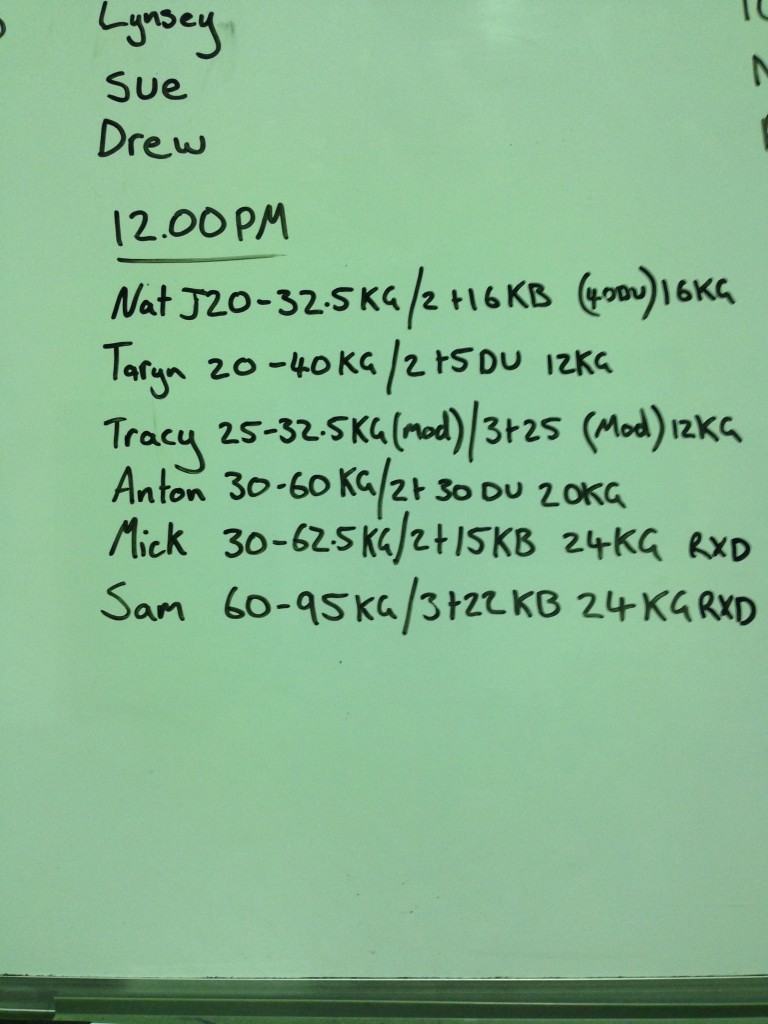 Lynsey
Sue
Drew
12.00PM
Nat J 20-32.5KG/2+16KB (40DU) 16KG
Taryn 20-40KG/2+5DU 12KG
Tracy 25-32.5KG(mod)/3+25 (Mod) 12KG
Anton 30-60KG/2+30DU 20KG
Mick 30-62.5KG/2+15KB 24KG RXD
Sam 60-95KG/3+22KB 24KG RXD